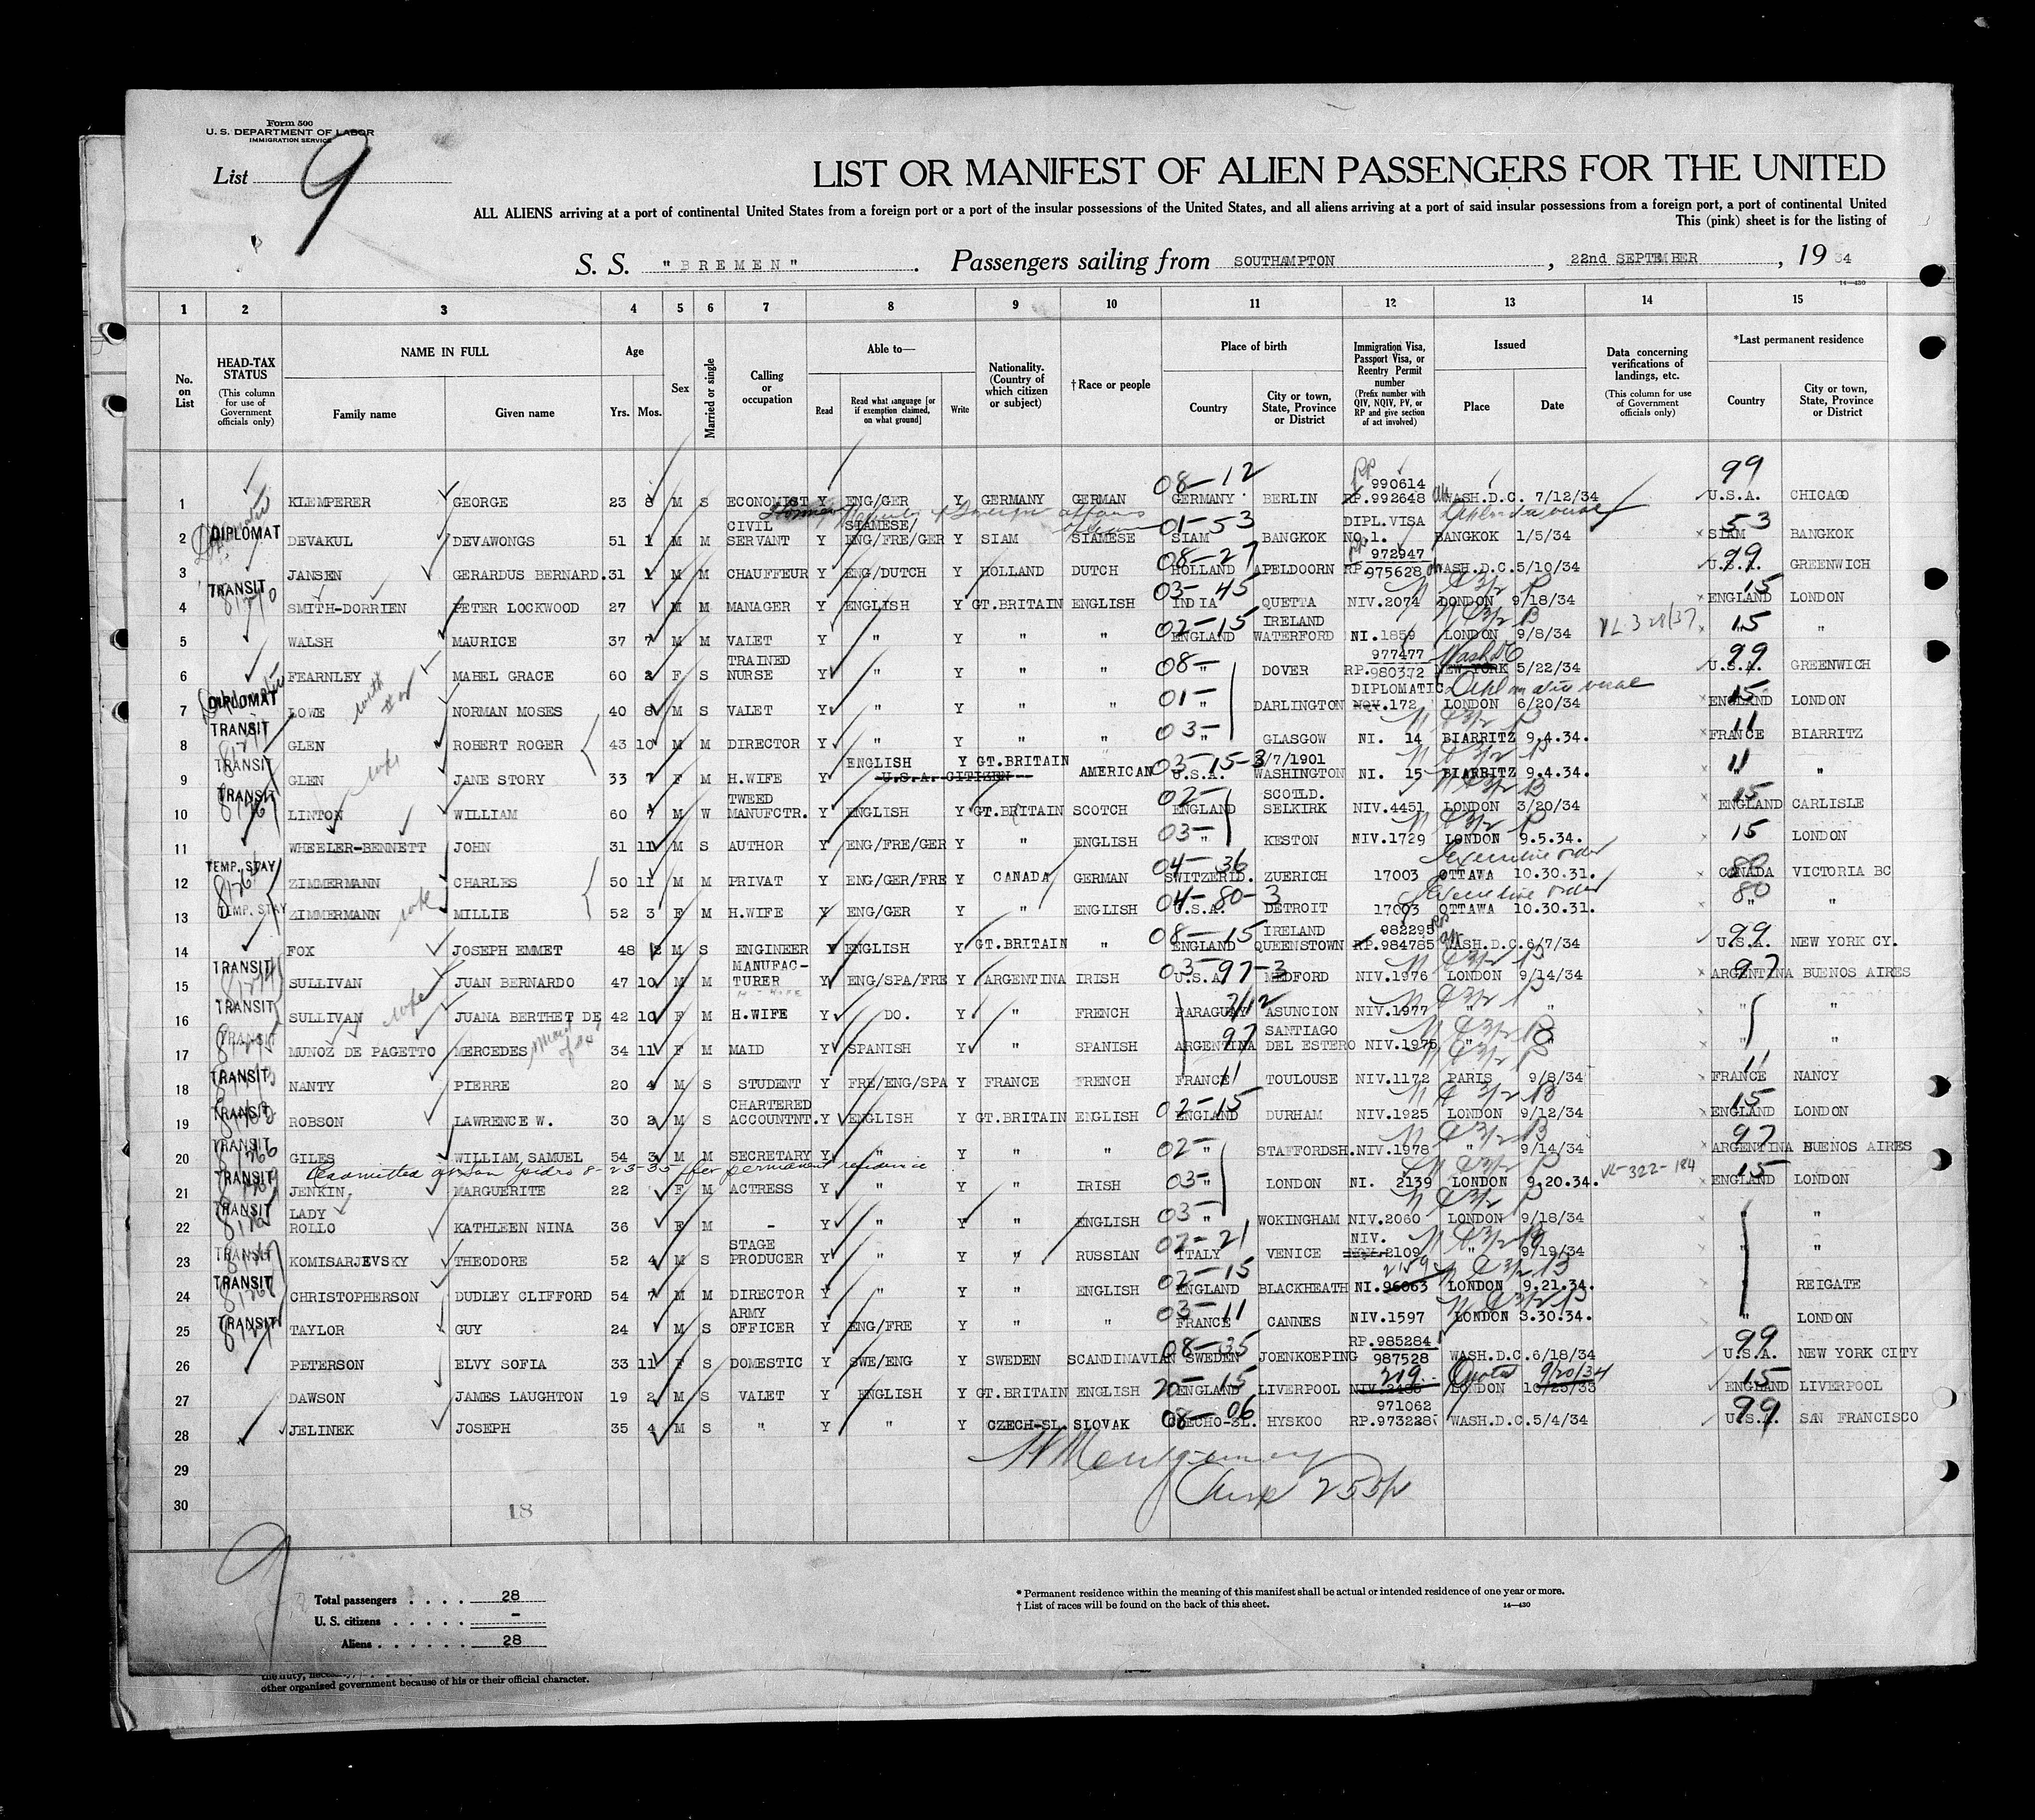 Form 500
U. S. DEPARTMENT OF LABOR
IMMIGRATION SERVICE
List 9
LIST OR MANIFEST OF ALIEN PASSENGERS FOR THE UNITED
ALL ALIENS arriving at a port of continental United States from a foreign port or a port of the insular possessions of the United States, and all aliens arriving at a port of said insular possessions from a foreign port, a port of continental United
This (pink) sheet is for the listing of
S. S. "BREMEN". Passengers sailing from SOUTHAMPTON, 22nd SEPTEMBER, 1934
14—430
1 2 3 4 5 6 7 8 9 10 11 12 13 14 15
No. on List
HEAD-TAX STATUS (This column for use of Government officials only)
NAME IN FULL Family name Given name
Age Yrs. Mos.
Sex
Married or single
Calling or occupation
Able to— Read Read what language [or if exemption claimed, on what ground] Write
Nationality. (Country of which citizen or subject)
†Race or people
Place of birth Country City or town, State, Province or District
Immigration Visa, Passport Visa, or Reentry Permit number (Prefix number with QIV, NQIV, PV, or RP and give section of act involved)
Issued Place Date
Data concerning verifications of landings, etc. (This column for use of Government officials only)
*Last permanent residence Country City or town, State, Province or District
08-12 RP 990614 99
1 KLEMPERER GEORGE 23 8 M S ECONOMIST Y ENG/GER Y GERMANY GERMAN GERMANY BERLIN RP.992648 WASH.D.C. 7/12/34 U.S.A. CHICAGO
Foreign affairs
DIPLOMAT CIVIL SIAMESE/ 01-53 DIPL.VISA 53
2 DEVAKUL DEVAWONGS 51 1 M M SERVANT Y ENG/FRE/GER Y SIAM SIAMESE SIAM BANGKOK NO.1. BANGKOK 1/5/34 SIAM BANGKOK
08-27 RP 972947 99
3 JANSEN GERARDUS BERNARD. 31 1 M M CHAUFFEUR Y ENG/DUTCH Y HOLLAND DUTCH HOLLAND APELDOORN RP.975628 WASH.D.C. 5/10/34 U.S.A. GREENWICH
TRANSIT 03-45 15
4 SMITH-DORRIEN PETER LOCKWOOD 27 M M MANAGER Y ENGLISH Y GT.BRITAIN ENGLISH INDIA QUETTA NIV.2074 LONDON 9/18/34 ENGLAND LONDON
02-15 IRELAND 15
5 WALSH MAURICE 37 7 M M VALET Y " Y " " ENGLAND WATERFORD NI.1859 LONDON 9/8/34 " "
TRAINED 08- 977477 99
6 FEARNLEY MABEL GRACE 60 2 F S NURSE Y " Y " " " DOVER RP.980372 NEW-YORK 5/22/34 U.S.A. GREENWICH
DIPLOMAT 01- DIPLOMATIC 15
7 LOWE NORMAN MOSES 40 8 M S VALET Y " Y " " " DARLINGTON NOV.172 LONDON 6/20/34 ENGLAND LONDON
TRANSIT 03- 11
8 GLEN ROBERT ROGER 43 10 M M DIRECTOR Y " Y " " " GLASGOW NI. 14 BIARRITZ 9.4.34. FRANCE BIARRITZ
TRANSIT ENGLISH Y GT.BRITAIN 03-15-3 3/7/1901 11
9 GLEN JANE STORY 33 7 F M H.WIFE Y U.S.A. CITIZEN AMERICAN U.S.A. WASHINGTON NI. 15 BIARRITZ 9.4.34. " "
TRANSIT TWEED 02- SCOTLD. 15
10 LINTON WILLIAM 60 7 M W MANUFCTR. Y ENGLISH Y GT.BRITAIN SCOTCH ENGLAND SELKIRK NIV.4451 LONDON 3/20/34 ENGLAND CARLISLE
03- 15
11 WHEELER-BENNETT JOHN 31 11 M S AUTHOR Y ENG/FRE/GER Y " ENGLISH " KESTON NIV.1729 LONDON 9.5.34. LONDON
TEMP. STAY 04-36 Executive order 80
12 ZIMMERMANN CHARLES 50 11 M M PRIVAT Y ENG/GER/FRE Y CANADA GERMAN SWITZERLD. ZUERICH 17003 OTTAWA 10.30.31. CANADA VICTORIA BC
TEMP. STAY 04-80-3 Executive order 80
13 ZIMMERMANN MILLIE 52 3 F M H.WIFE Y ENG/GER Y " ENGLISH U.S.A. DETROIT 17003 OTTAWA 10.30.31. " "
08-15 IRELAND 982295 99
14 FOX JOSEPH EMMET 48 2 M S ENGINEER Y ENGLISH Y GT.BRITAIN " ENGLAND QUEENSTOWN RP.984785 WASH.D.C. 6/7/34 U.S.A. NEW YORK CY.
TRANSIT MANUFAC- 03-97-3 97
15 SULLIVAN JUAN BERNARDO 47 10 M M TURER Y ENG/SPA/FRE Y ARGENTINA IRISH U.S.A. MEDFORD NIV.1976 LONDON 9/14/34 ARGENTINA BUENOS AIRES
TRANSIT
16 SULLIVAN JUANA BERTHET DE 42 10 F M H.WIFE Y DO. Y " FRENCH PARAGUAY ASUNCION NIV.1977 " " " "
TRANSIT 97 SANTIAGO
17 MUNOZ DE PAGETTO MERCEDES 34 11 F M MAID Y SPANISH Y " SPANISH ARGENTINA DEL ESTERO NIV.1975 " " " "
TRANSIT 11 11
18 NANTY PIERRE 20 4 M S STUDENT Y FRE/ENG/SPA Y FRANCE FRENCH FRANCE TOULOUSE NIV.1172 PARIS 9/8/34 FRANCE NANCY
TRANSIT CHARTERED 02-15 15
19 ROBSON LAWRENCE W. 30 2 M S ACCOUNTNT. Y ENGLISH Y GT.BRITAIN ENGLISH ENGLAND DURHAM NIV.1925 LONDON 9/12/34 ENGLAND LONDON
TRANSIT 02- 97
20 GILES WILLIAM SAMUEL 54 3 M M SECRETARY Y " Y " " " STAFFORDSH. NIV.1978 " 9/14/34 ARGENTINA BUENOS AIRES
Readmitted at San Ysidro 8-23-35 for permanent residence
TRANSIT 03- VL-322-184 15
21 JENKIN MARGUERITE 22 F M ACTRESS Y " Y " IRISH " LONDON NI. 2139 LONDON 9.20.34. ENGLAND LONDON
TRANSIT LADY 03-
22 ROLLO KATHLEEN NINA 36 F M - Y " Y " ENGLISH " WOKINGHAM NIV.2060 LONDON 9/18/34 " "
TRANSIT STAGE 02-21 NIV.
23 KOMISARJEVSKY THEODORE 52 4 M S PRODUCER Y " Y " RUSSIAN ITALY VENICE 2109 " 9/19/34 " "
TRANSIT 02-15 2159
24 CHRISTOPHERSON DUDLEY CLIFFORD 54 7 M M DIRECTOR Y " Y " ENGLISH ENGLAND BLACKHEATH NI.96063 LONDON 9.21.34. " REIGATE
TRANSIT ARMY 03-11
25 TAYLOR GUY 24 M S OFFICER Y ENG/FRE Y " " FRANCE CANNES NIV.1597 LONDON 3.30.34. " LONDON
08-35 RP.985284 99
26 PETERSON ELVY SOFIA 33 11 F S DOMESTIC Y SWE/ENG Y SWEDEN SCANDINAVIAN SWEDEN JOENKOEPING 987528 WASH.D.C. 6/18/34 U.S.A. NEW YORK CITY
20-15 219 Quota 9/20/34 15
27 DAWSON JAMES LAUGHTON 19 2 M S VALET Y ENGLISH Y GT.BRITAIN ENGLISH ENGLAND LIVERPOOL LONDON 10/25/33 ENGLAND LIVERPOOL
08-06 971062 99
28 JELINEK JOSEPH 35 4 M S " Y " Y CZECH-SL. SLOVAK CZECHO-SL. HYSKOO RP.973228 WASH.D.C. 5/4/34 U.S.A. SAN FRANCISCO
29
30
18
9
Total passengers . . . . 28
U. S. citizens . . . . . -
Aliens . . . . . . 28
* Permanent residence within the meaning of this manifest shall be actual or intended residence of one year or more.
† List of races will be found on the back of this sheet.
14—430
other organized government because of his or their official character.